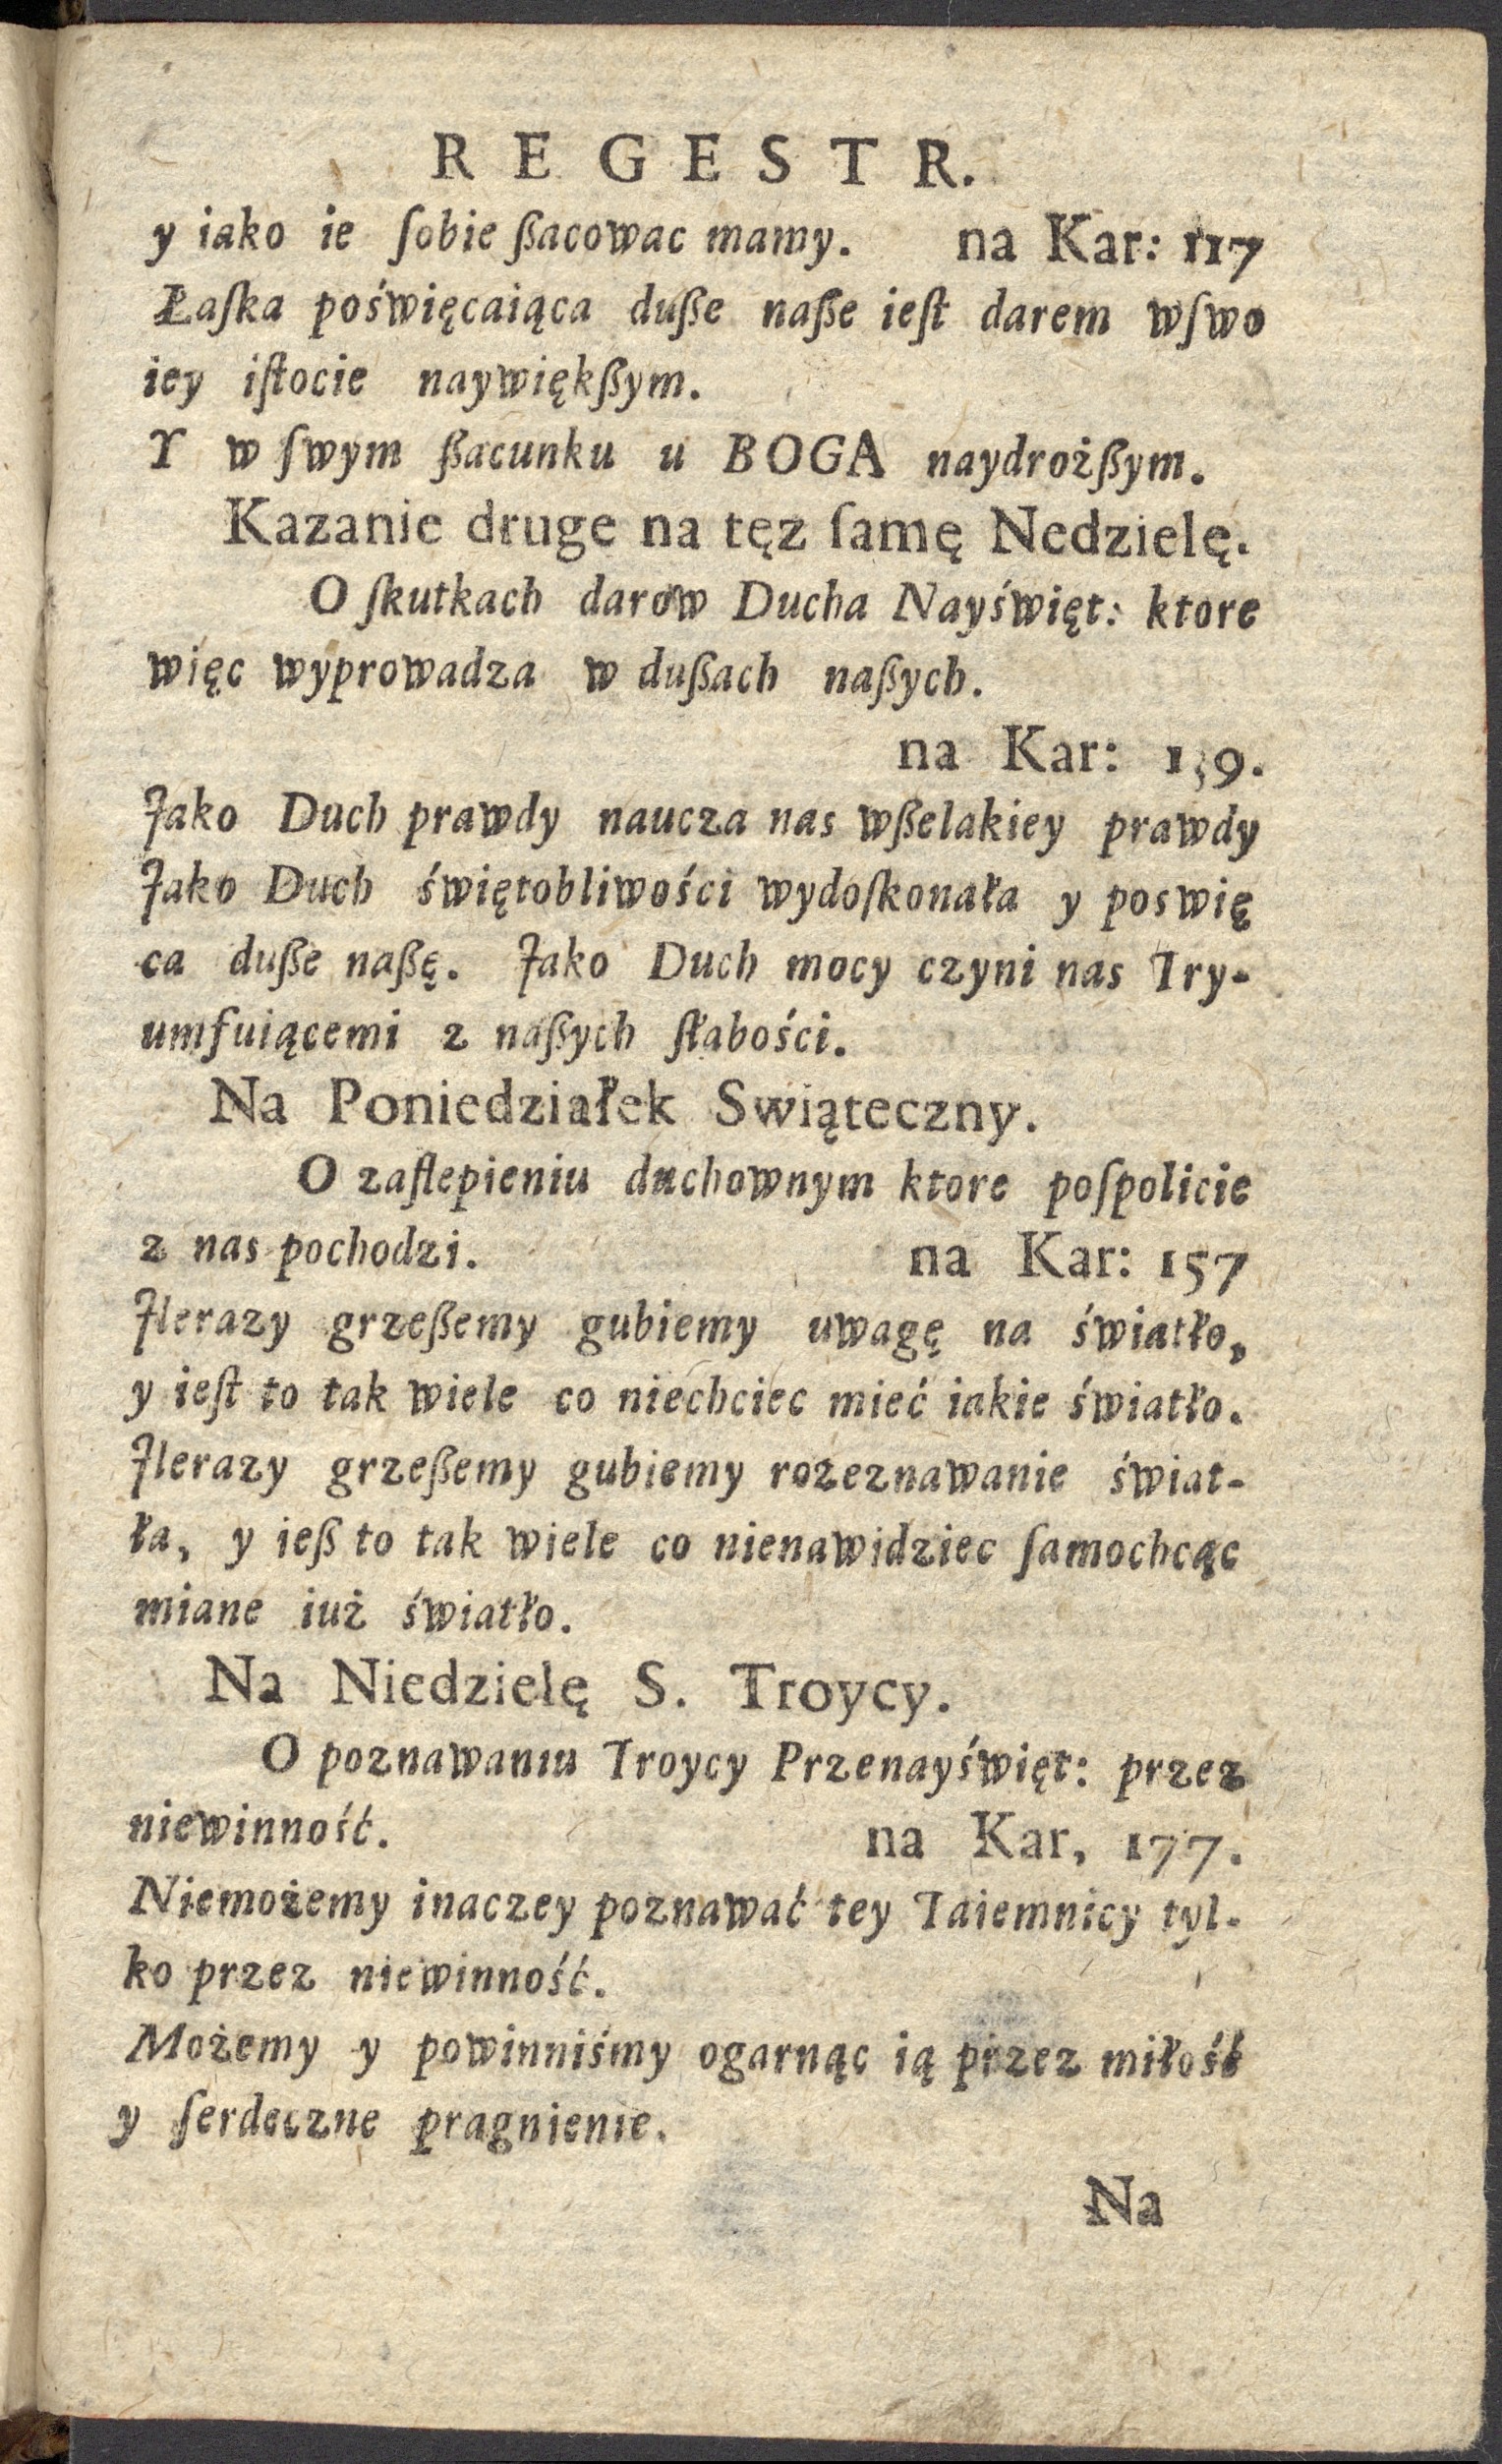 REGESTR.
y iako ie ſobie ßacowac mamy. na Kar: 117
Łaſka poświęcaiąca duße naße ieſt darem wſwo
iey iſtocie naywiękßym.
Y w ſwym ßacunku u BOGA naydrożßym.
Kazanie druge na tęz ſamę Nedzielę.
O ſkutkach darow Ducha Nayświęt: ktore
więc wyprowadza w dußach naßych.
na Kar: 139.
Jako Duch prawdy naucza nas wßelakiey prawdy
Jako Duch świętobliwości wydoſkonała y poswię
ca duße naßę. Jako Duch mocy czyni nas Try-
umfuiącemi z naßych ſłabości.
Na Poniedziałek Swiąteczny.
O zaſlepieniu duchownym ktore poſpolicie
z nas pochodzi. na Kar: 157
Jlerazy grzeßemy gubiemy uwagę na światło,
y ieſt to tak wiele co niechciec mieć iakie światło.
Jlerazy grzeßemy gubiemy rozeznawanie świat-
ła, y ieß to tak wiele co nienawidziec ſamochcąc
miane iuż światło.
Na Niedzielę S. Troycy.
O poznawaniu Troycy Przenayświęt: przez
niewinność. na Kar, 177.
Niemożemy inaczey poznawać tey Taiemnicy tyl-
ko przez niewinność.
Możemy y powinniśmy ogarnąc ią przez miłość
y ſerdeczne pragnienie.
Na